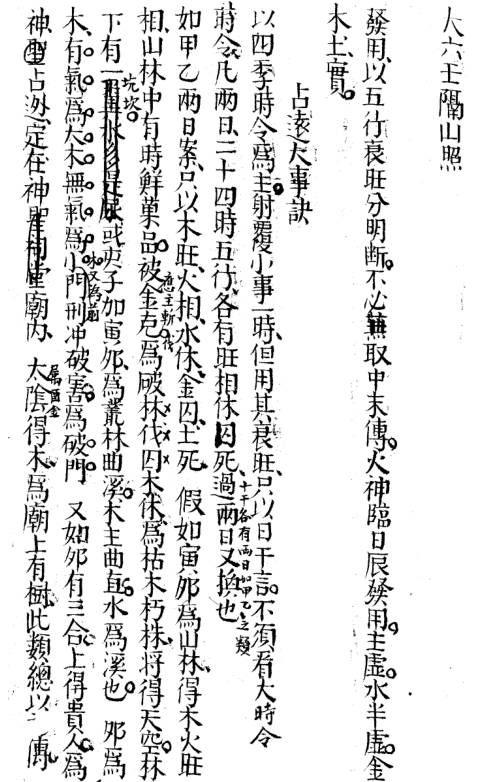 大六壬隔山照
發用以五行衰旺分明斷不必兼取中末傳火神臨日辰發用主虛水半虛金
木土實
占遠大事訣
以四季時令為主射覆小事一時但用其衰旺只以日干言不須看大時令
時令凡兩日二十四時五行各有旺相休囚死過兩日又換也
十干各有兩日如甲乙之類
如甲乙兩日案只以木旺火相水休金囚土死 假如寅夘為山林得木火旺
相山林中有時鮮菓品被金克為破林伐囚木休為枯木朽株将得天空林
應主斬伐
下有一 或亥子加寅夘為叢林曲溪木主曲直水為溪也 夘為
坑坎
木有氣為大木無氣為小門刑冲破害為破門 又如夘有三合上得貴人為
神聖占逃定在神聖祠堂廟内 太陰得木為廟上有樹此類總以三傳
屬酉金